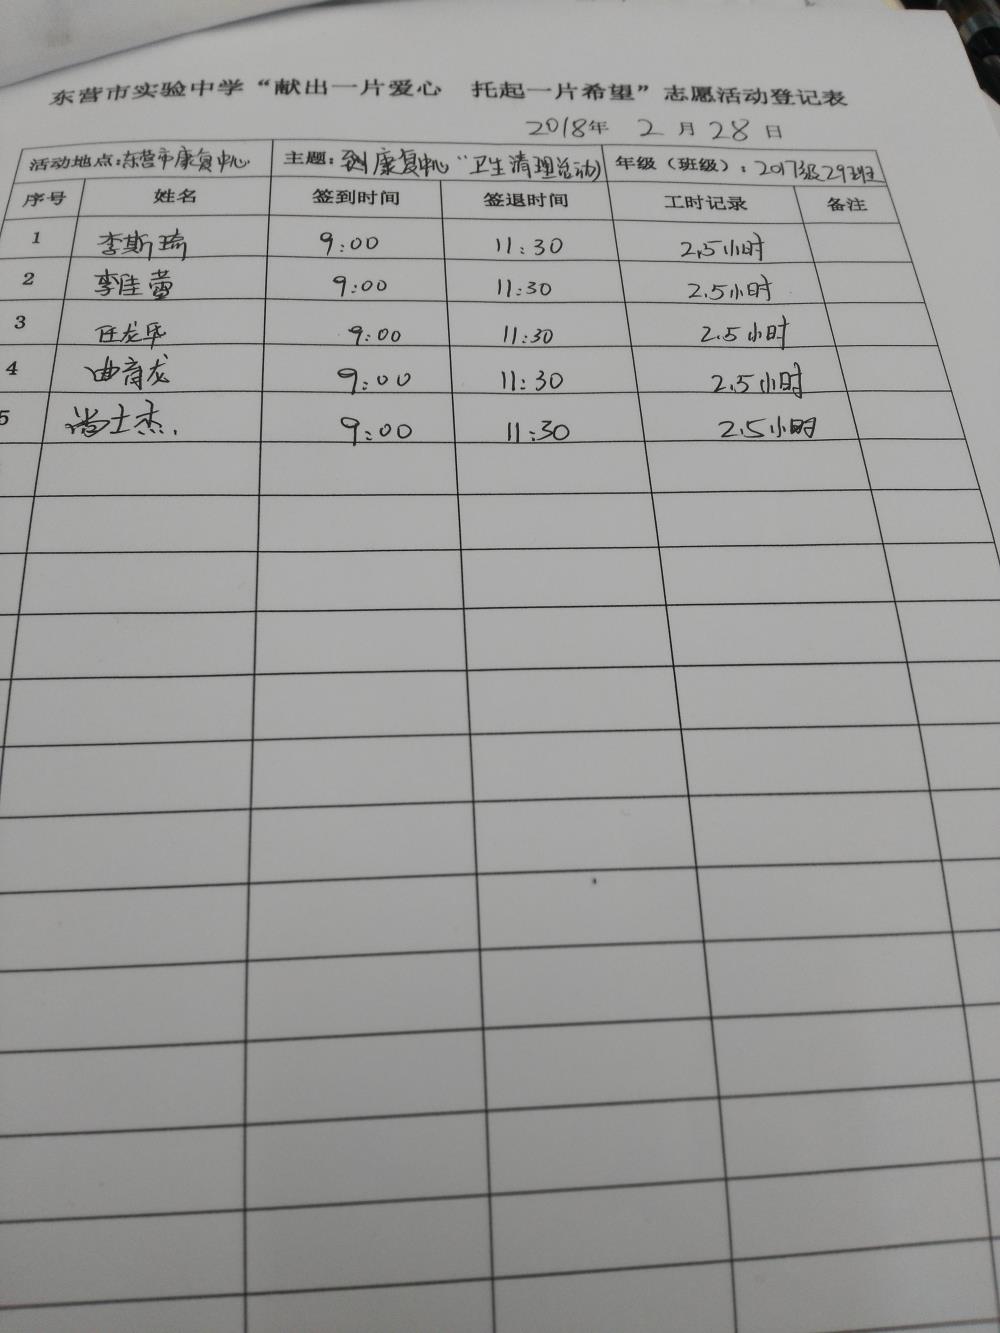 东营市实验中学“献出一片爱心 托起一片希望”志愿活动登记表
2018年 2 月 28 日
活动地点:东营市康复中心 主题:到康复中心“卫生清理活动 年级（班级）:2017级29班
序号 姓名 签到时间 签退时间 工时记录 备注
1 李斯琦 9:00 11:30 2.5小时
2 李佳蕾 9:00 11:30 2.5小时
3 任龙华 9:00 11:30 2.5小时
4 曲育龙 9:00 11:30 2.5小时
5 尚士杰. 9:00 11:30 2.5小时